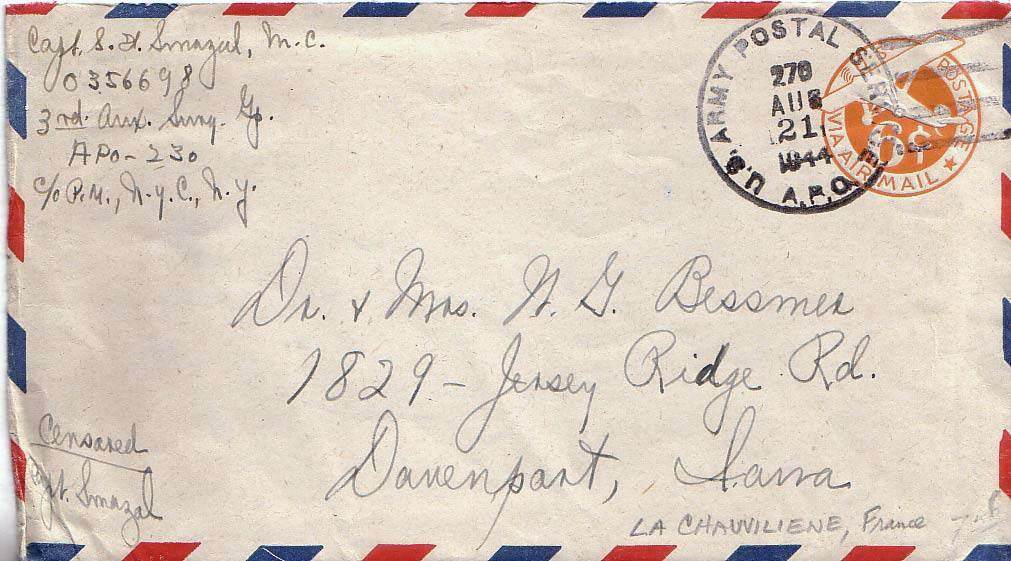 Capt. S. H. Smazal, M.C.
0356698
3rd Aux. Surg. Gp.
APO-230
c/o P.M., N.Y.C., N.Y.
U.S. ARMY POSTAL SERVICE
A.P.O.
270
AUG
21
1944
POSTAGE
6¢
VIA AIR MAIL
Dr. & Mrs. W. G. Bessmer
1829 - Jersey Ridge Rd.
Davenport, Iowa
Censored
Capt. Smazal
LA CHAUVILIENE, France